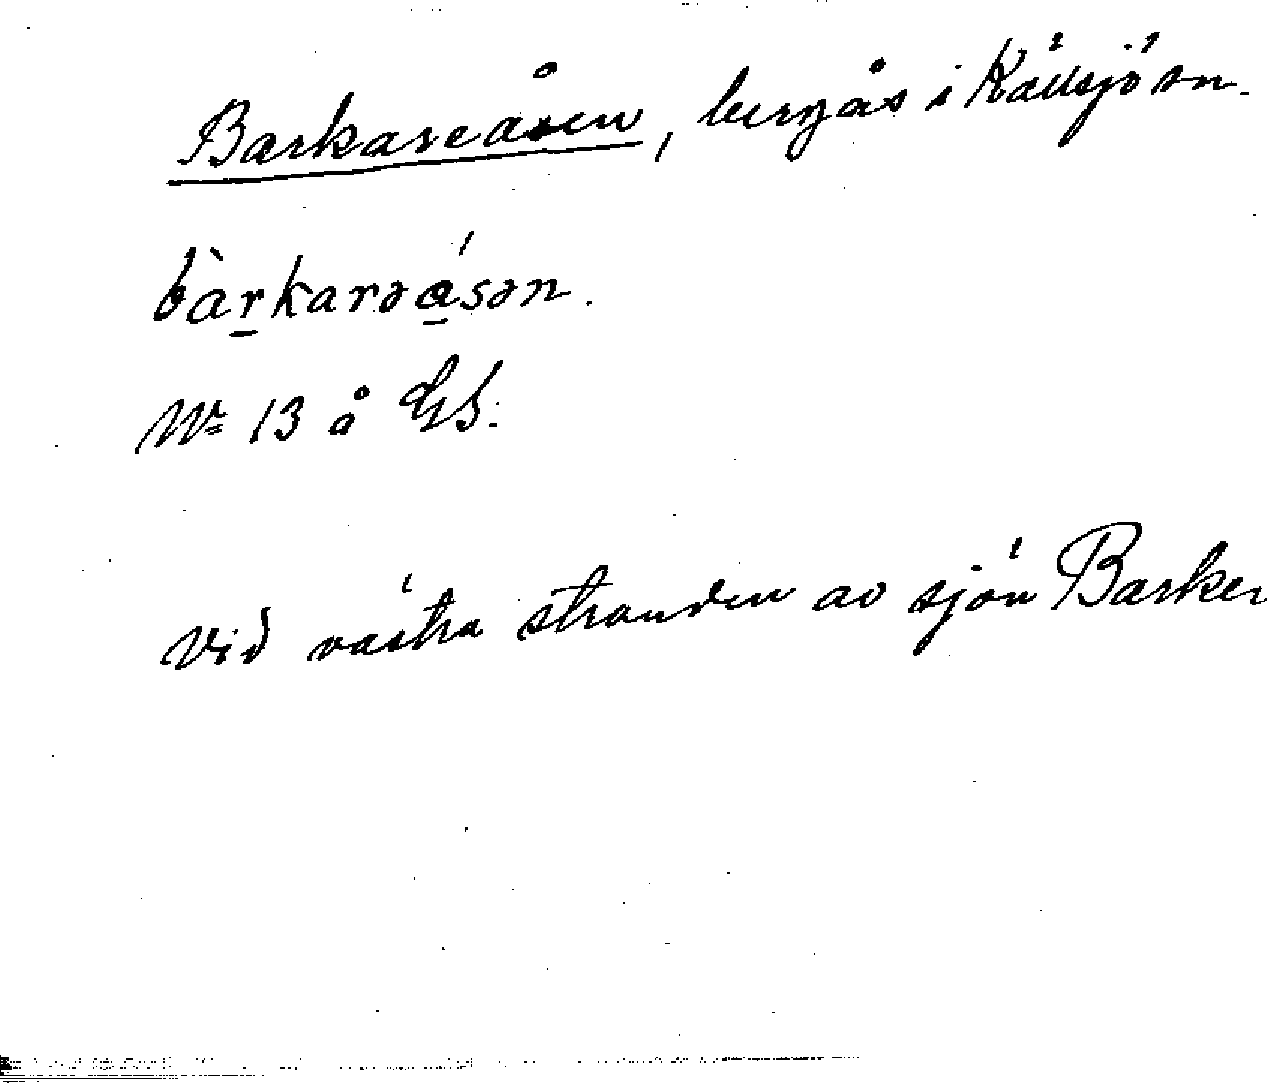 Barkareåsen, bergås i Källsjö sn.
bàrkarəásən.
Nr 13 å GS.
Vid västra stranden av sjön Barken